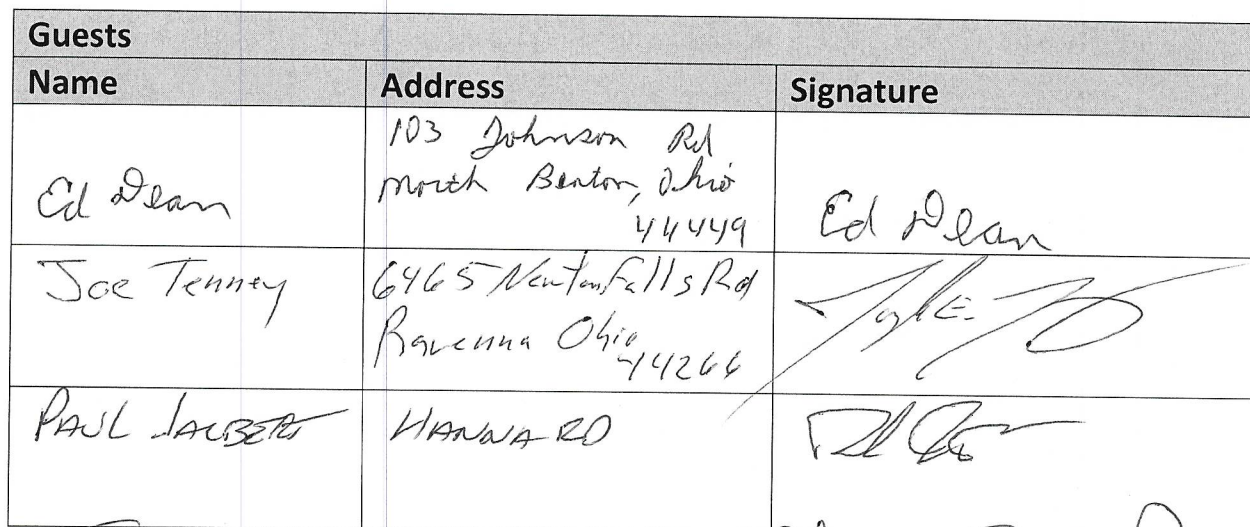 Guests
Name Address Signature
103 Johnson Rd
North Benton, Ohio
44449
Ed Dean Ed Dean
Joe Tenney 6465 Newton Falls Rd
Ravenna Ohio
44266
PAUL JALBERT HANNA RD